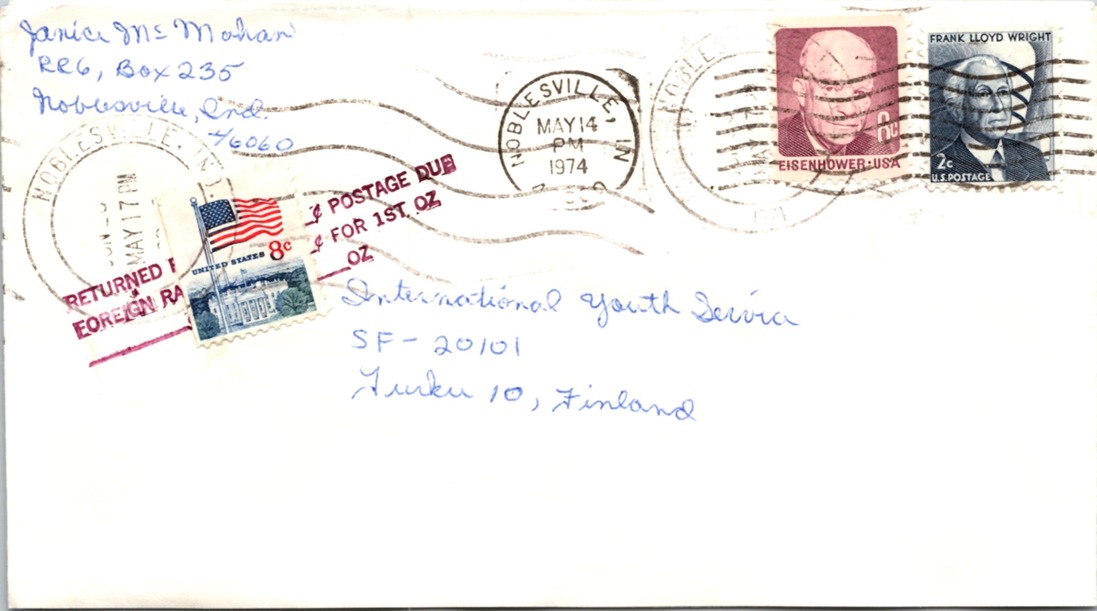 Janice Mc Mohan
RR6, Box 235
Noblesville, Ind.
46060
NOBLESVILLE, IN
MAY 14
PM
1974
NOBLES
EISENHOWER·USA
8c
FRANK LLOYD WRIGHT
2c
U.S. POSTAGE
NOBLESVILLE, IN
MAY 17 PM
RETURNED
¢ POSTAGE DUE
FOREIGN RA
¢ FOR 1ST. OZ
OZ
UNITED STATES 8c
International Youth Service
SF - 20101
Turku 10, Finland